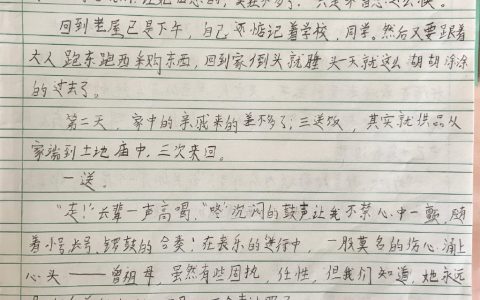 回到老屋已是下午，自己还惦记着学校，同学。然后又要跟着
大人跑东跑西采购东西，回到家倒头就睡 头一天就这么胡胡涂涂
的过去了。
第二天，家中的亲戚来的差不多了；三送饭，其实就供品从
家端到土地庙中，三次来回。
一送。
“走！”长辈一声高喝，“咚”沉闷的鼓声让我不禁心中一颤，随
着小号长号，锣鼓的合奏！在哀乐的进行中，一股莫名的伤心涌上
心头——曾祖母，虽然有些固执，任性，但我们知道，她永远